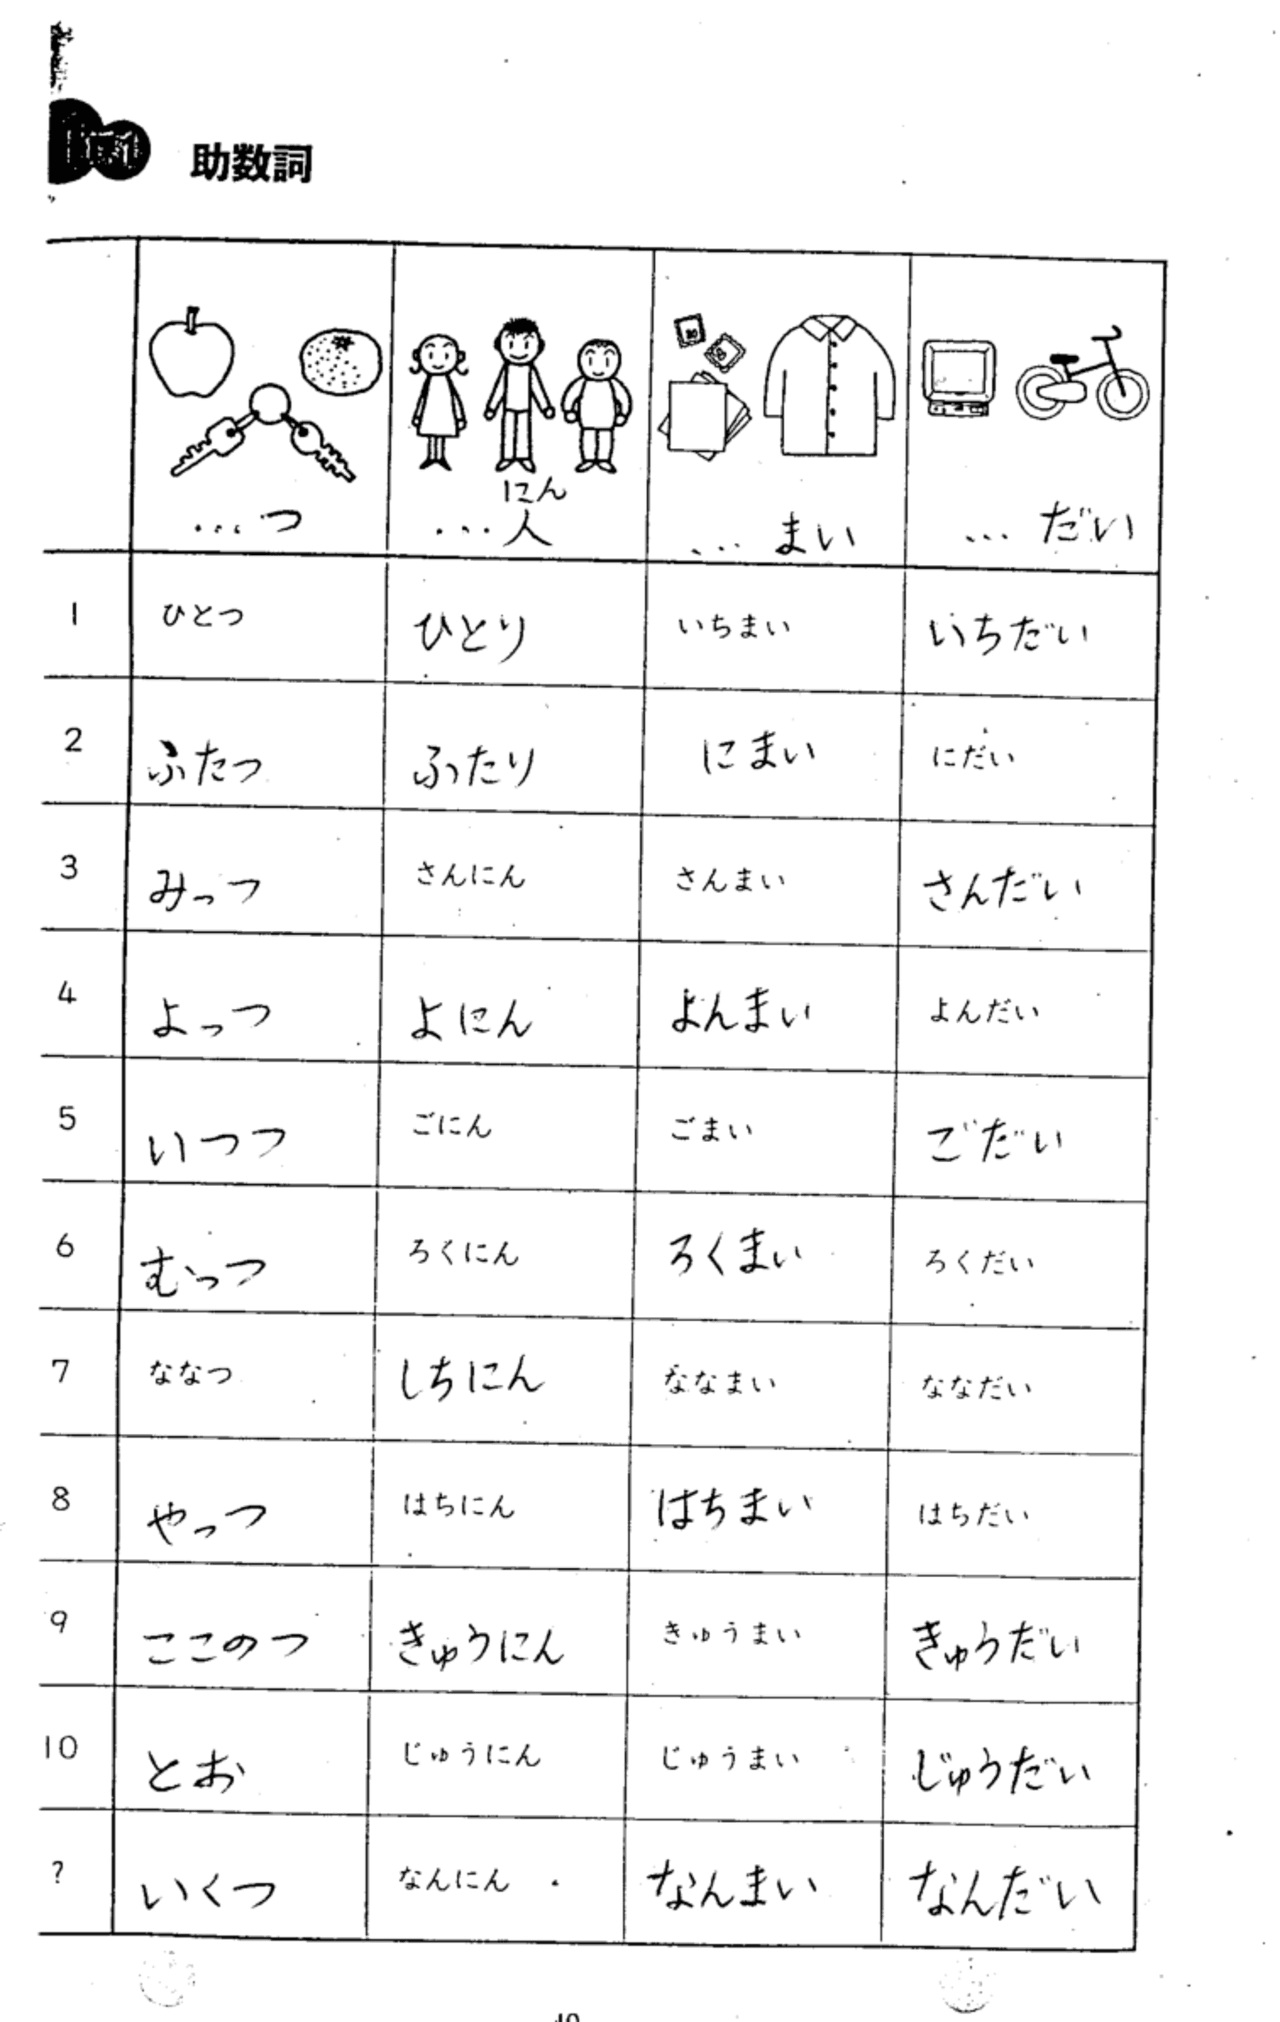 助数詞
…つ …にん人 …まい …だい
1 ひとつ ひとり いちまい いちだい
2 ふたつ ふったり にまい にだい
3 みっつ さんにん さんまい さんだい
4 よっつ よにん よんまい よんだい
5 いつつ ごにん ごまい ごだい
6 むっつ ろくにん ろくまい ろくだい
7 ななつ しちにん ななまい ななだい
8 やっつ はちにん はちまい はちだい
9 ここのつ きゅうにん きゅうまい きゅうだい
10 とお じゅうにん じゅうまい じゅうだい
? いくつ なんにん なんまい なんだい